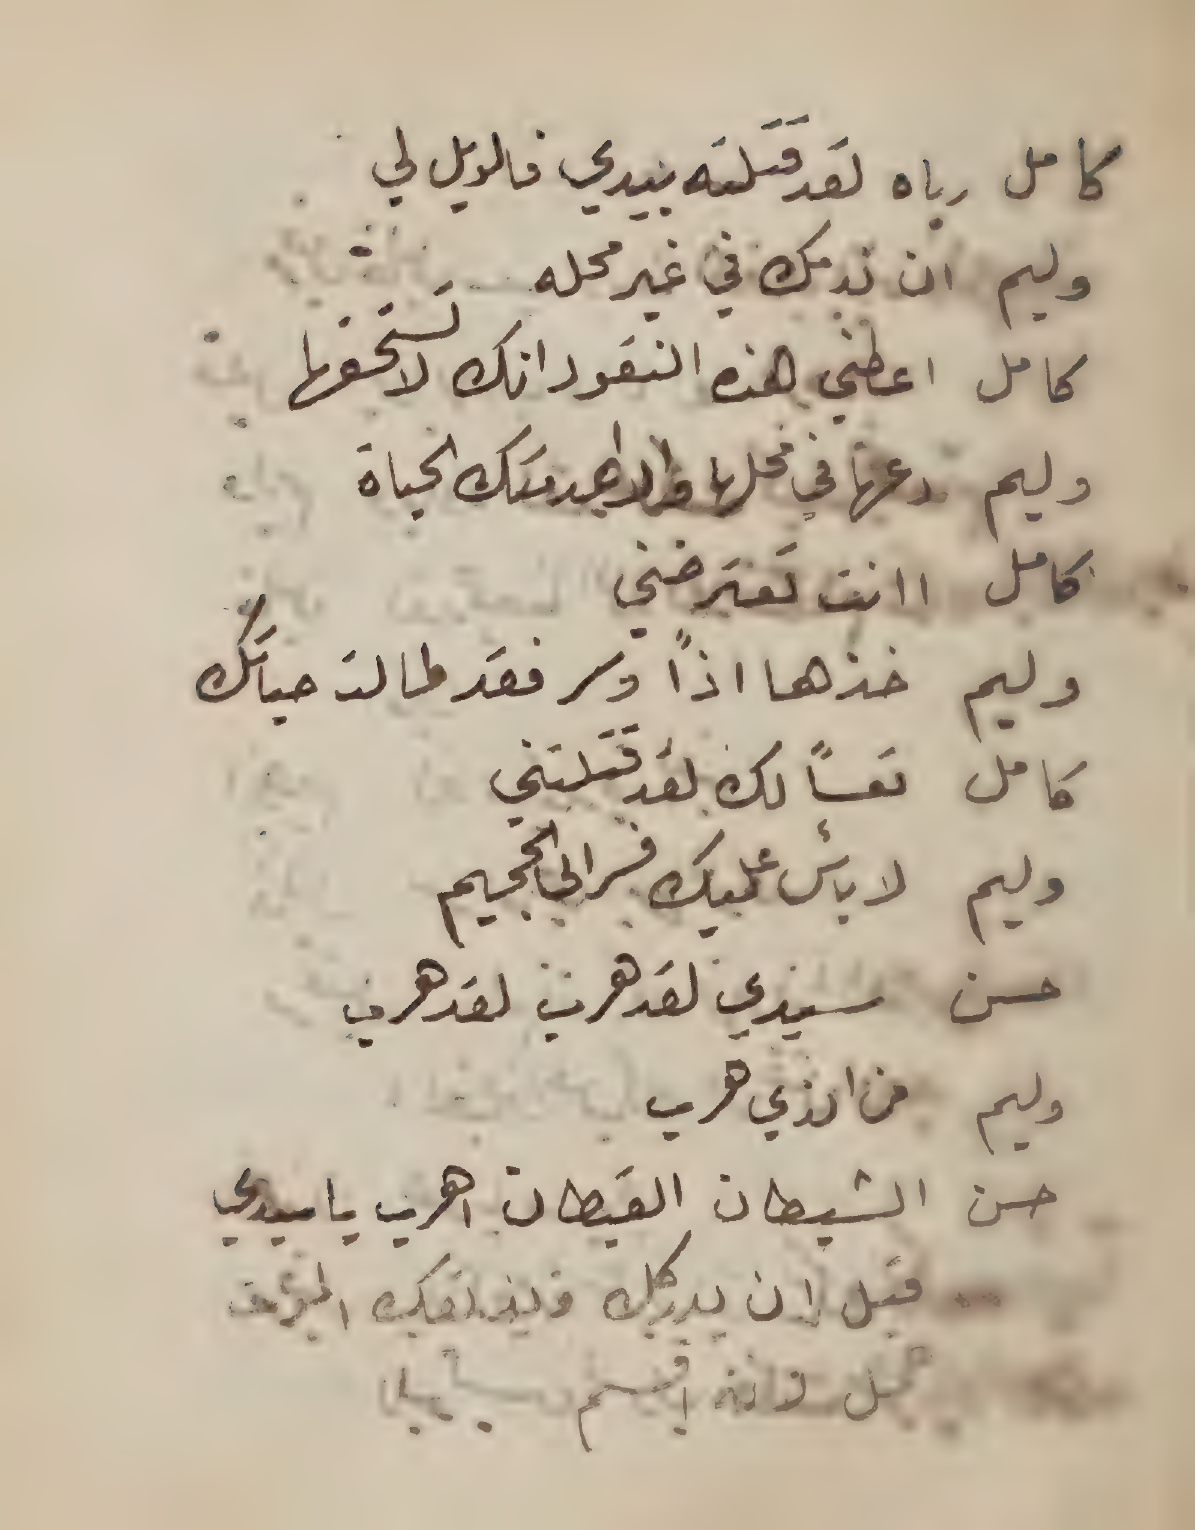 كامل رباه لقد قتلته بيدي فالويل لي
وليم ان ندمك في غير محله
كامل اعطني هذه النقود انك لا تستحقها
وليم دعها في محلها والا اعدمتك الحياة
كامل اانت تعترضني
وليم خذها اذاً وسر فقد طالت حياتك
كامل تعساً لك لقد قتلتني
وليم لا بأس عليك فسر الى الجحيم
حسن سيدي لقد هرب لقد هرب
وليم من الذي هرب
حسن الشيطان القبطان اهرب يا سيدي
قبل ان يدركك
لانه اقسم